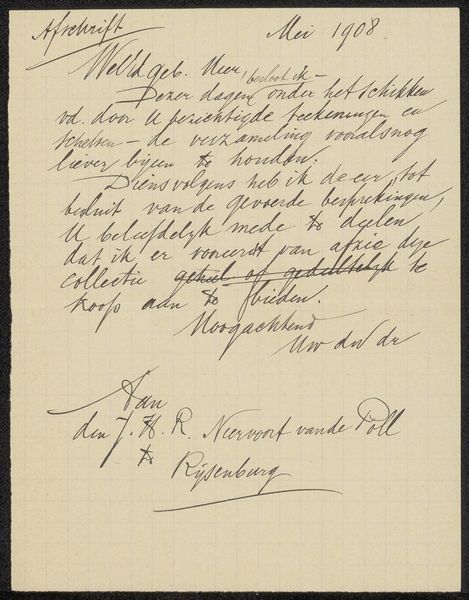 Afschrift
Mei 1908.
WelEd geb. Heer,
besloot ik –
Dezer dagen onder het schikken
vd. door U bezichtigde teekeningen en
schetsen – de verzameling vooralsnog
liever bijeen te houden.
Diensvolgens heb ik de eer, tot
besluit van de gevoerde besprekingen,
U beleefdelijk mede te deelen
dat ik er voorerst van afzie deze
collectie geheel of gedeeltelijk te
koop aan te bieden.
Hoogachtend
Uw dw dr
Aan
den J. H. R. Niervoort vande Poll
te
Rijsenburg